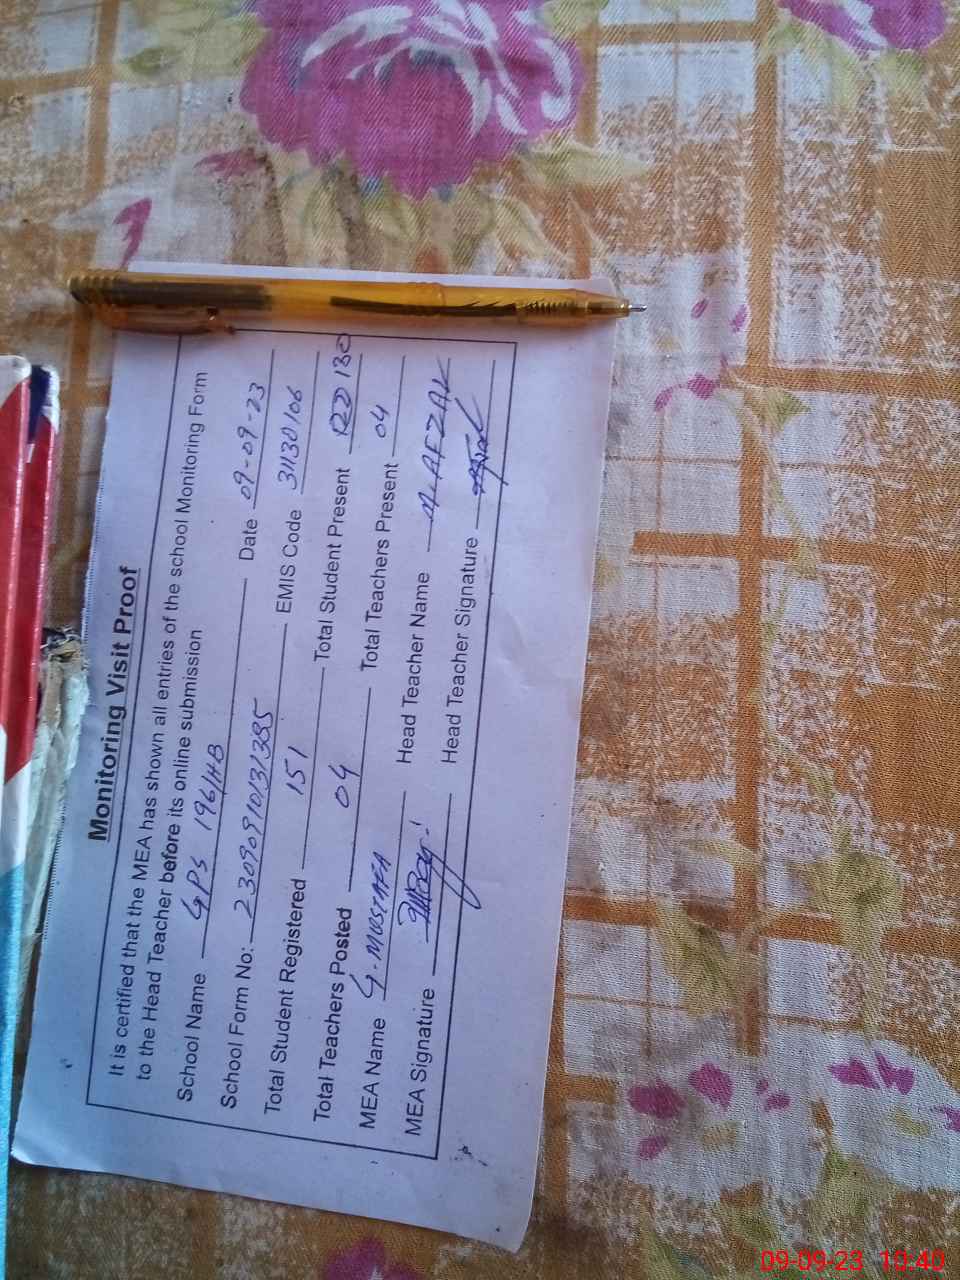 Monitoring Visit Proof
It is certified that the MEA has shown all entries of the school Monitoring Form
to the Head Teacher before its online submission
School Name GPS 196/HB Date 09-09-23
School Form No: 23090910131385 EMIS Code 31130106
Total Student Registered 151 Total Student Present 130
Total Teachers Posted 04 Total Teachers Present 04
MEA Name G. MUSTAFA Head Teacher Name M. AFZAL
MEA Signature Head Teacher Signature
09-09-23 10:40